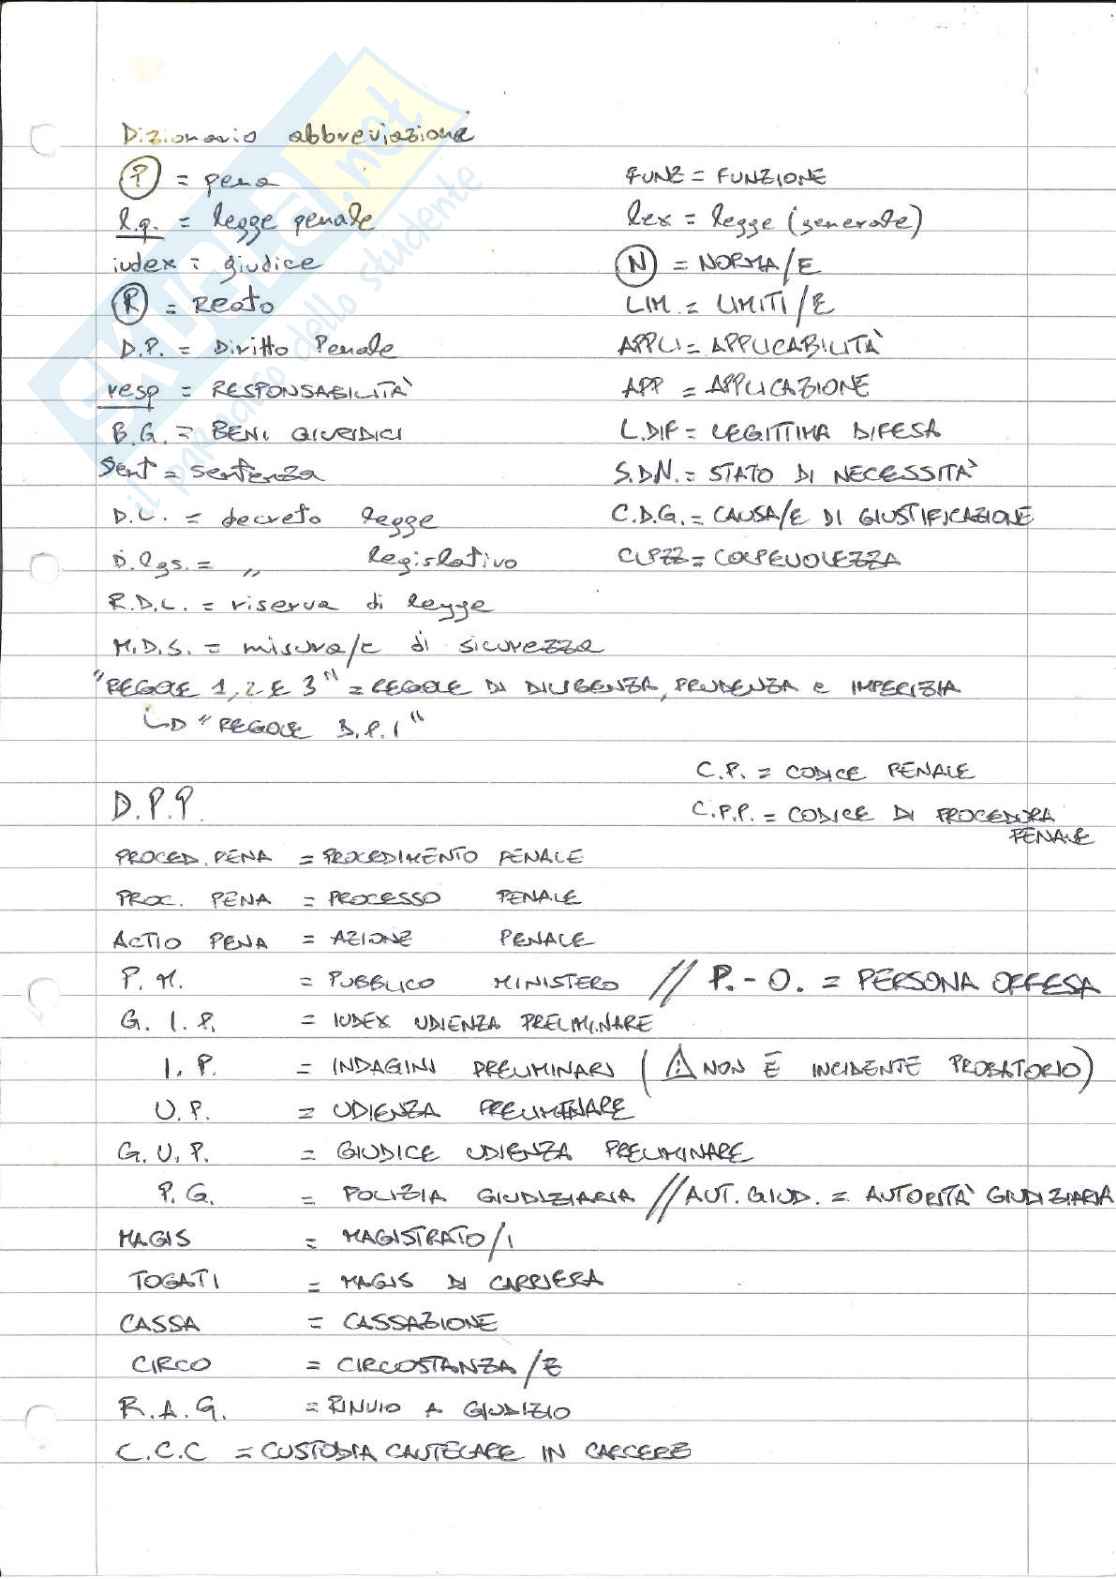 Dizionario abbreviazione
P = pena
l.p. = legge penale
iudex = giudice
R = Reato
D.P. = Diritto Penale
resp = RESPONSABILITÀ
B.G. = BENI GIURIDICI
Sent = sentenza
D.L. = decreto legge
D.lgs. = " legislativo
R.D.L. = riserva di legge
M.D.S. = misura/e di sicurezza
FUNZ = FUNZIONE
lex = legge (generale)
N = NORMA/E
LIM. = LIMITI/E
APPLI = APPLICABILITÀ
APP = APPLICAZIONE
L.DIF = LEGITTIMA DIFESA
S.D.N. = STATO DI NECESSITÀ
C.D.G. = CAUSA/E DI GIUSTIFICAZIONE
CLPZZ = COLPEVOLEZZA
"REGOLE 1, 2 E 3" = REGOLE DI DILIGENZA, PRUDENZA e IMPERIZIA
"REGOLE D.P.I"
C.P. = CODICE PENALE
C.P.P. = CODICE DI PROCEDURA
PENALE
D.P.P.
PROCED. PENA = PROCEDIMENTO PENALE
PROC. PENA = PROCESSO PENALE
ACTIO PENA = AZIONE PENALE
P. M. = PUBBLICO MINISTERO // P.-O. = PERSONA OFFESA
G. I. P. = IUDEX UDIENZA PRELIMINARE
I. P. = INDAGINI PRELIMINARI (⚠ NON È INCIDENTE PROBATORIO)
U. P. = UDIENZA PRELIMINARE
G. U. P. = GIUDICE UDIENZA PRELIMINARE
P. G. = POLIZIA GIUDIZIARIA // AUT. GIUD. = AUTORITÀ GIUDIZIARIA
MAGIS = MAGISTRATO/I
TOGATI = MAGIS DI CARRIERA
CASSA = CASSAZIONE
CIRCO = CIRCOSTANZA/E
R.A.G. = RINVIO A GIUDIZIO
C.C.C = CUSTODIA CAUTELARE IN CARCERE
SKUOLA.net
il paradiso dello studente